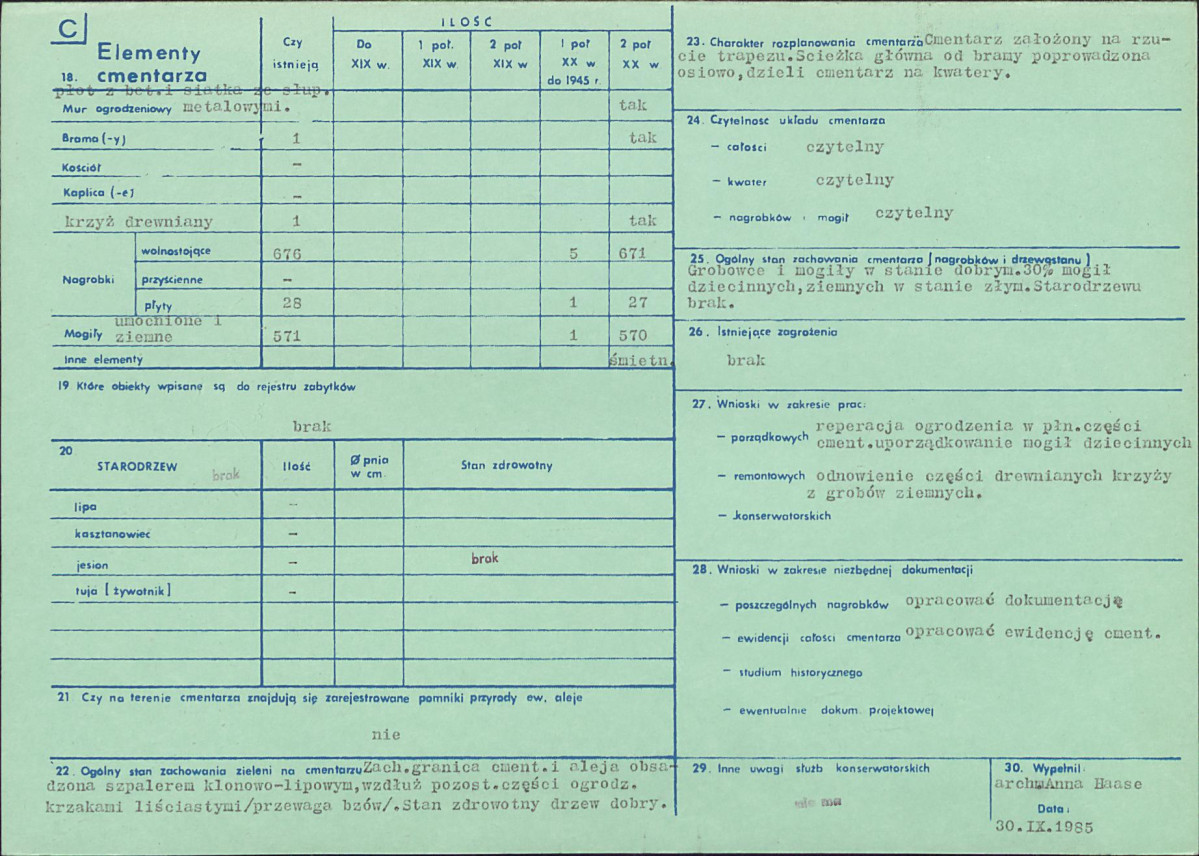 C
Elementy
18. cmentarza
Czy
istnieją
ILOŚĆ
Do
XIX w.
1 poł.
XIX w.
2 poł
XIX w
I poł
XX w
do 1945 r.
2 poł
XX w.
płot z bet.i siatka ze słup.
Mur ogrodzeniowy metalowymi. tak
Brama (-y) 1 tak
Kościół –
Kaplica (-e) –
krzyż drewniany 1 tak
Nagrobki
wolnostojące 676 5 671
przyścienne –
płyty 28 1 27
umocnione i
Mogiły ziemne 571 1 570
Inne elementy śmietn.
19 Które obiekty wpisane są do rejestru zabytków
brak
20
STARODRZEW brak
Ilość
Ø pnia
w cm
Stan zdrowotny
lipa –
kasztanowiec –
jesion – brak
tuja [ żywotnik ] –
21 Czy na terenie cmentarza znajdują się zarejestrowane pomniki przyrody ew. aleje
nie
22. Ogólny stan zachowania zieleni na cmentarzu Zach.granica cment.i aleja obsa-
dzona szpalerem klonowo-lipowym,wzdłuż pozost.części ogrodz.
krzakami liściastymi/przewaga bzów/.Stan zdrowotny drzew dobry.
23. Charakter rozplanowania cmentarza Cmentarz założony na rzu-
cie trapezu.Scieżka główna od bramy poprowadzona
osiowo,dzieli cmentarz na kwatery.
24. Czytelność układu cmentarza
– całości czytelny
– kwater czytelny
– nagrobków i mogił czytelny
25. Ogólny stan zachowania cmentarza [ nagrobków i drzewostanu ]
Grobowce i mogiły w stanie dobrym.30% mogił
dziecinnych,ziemnych w stanie złym.Starodrzewu
brak.
26. Istniejące zagrożenia
brak
27. Wnioski w zakresie prac:
– porządkowych reperacja ogrodzenia w płn.części
cment.uporządkowanie mogił dziecinnych
– remontowych odnowienie części drewnianych krzyży
z grobów ziemnych.
– konserwatorskich
28. Wnioski w zakresie niezbędnej dokumentacji
– poszczególnych nagrobków opracować dokumentację
– ewidencji całości cmentarza opracować ewidencję cment.
– studium historycznego
– ewentualnie dokum. projektowej
29. Inne uwagi służb konserwatorskich
nie ma
30. Wypełnił
arch. Anna Haase
Data:
30.IX.1985